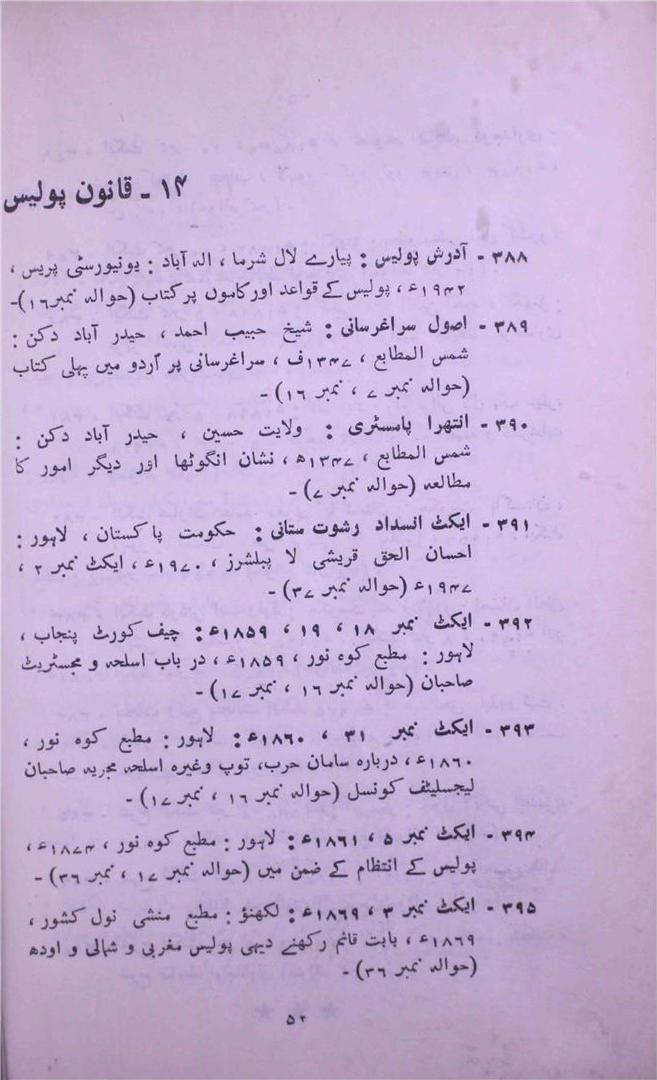 ۱۴ - قانون پولیس
۳۸۸ - آدرش پولیس : پیارے لال شرما ، الہ آباد : یونیورسٹی پریس ،
۱۹۴۲ء ، پولیس کے قواعد اور کاموں پر کتاب (حوالہ نمبر ۱۶)-
۳۸۹ - اصول سراغرسانی : شیخ حبیب احمد ، حیدر آباد دکن :
شمس المطابع ، ۱۳۴۷ف ، سراغرسانی پر اُردو میں پہلی کتاب
(حوالہ نمبر ۷ ، نمبر ۱۶) -
۳۹۰ - انتھرا پامسٹری : ولایت حسین ، حیدر آباد دکن :
شمس المطابع ، ۱۳۴۷ھ ، نشان انگوٹھا اور دیگر امور کا
مطالعہ (حوالہ نمبر ۷) -
۳۹۱ - ایکٹ انسداد رشوت ستانی : حکومت پاکستان ، لاہور :
احسان الحق قریشی لا پبلشرز ، ۱۹۷۰ء ، ایکٹ نمبر ۲ ،
۱۹۴۷ء (حوالہ نمبر ۳۷) -
۳۹۲ - ایکٹ نمبر ۱۸ ، ۱۹ ، ۱۸۵۹ء : چیف کورٹ پنجاب ،
لاہور : مطبع کوہ نور ، ۱۸۵۹ء ، در باب اسلحہ و مجسٹریٹ
صاحبان (حوالہ نمبر ۱۶ ، نمبر ۱۷) -
۳۹۳ - ایکٹ نمبر ۳۱ ، ۱۸۶۰ء : لاہور : مطبع کوہ نور ،
۱۸۶۰ء ، دربارہ سامان حرب، توپ وغیرہ اسلحہ مجریہ صاحبان
لیجسلیٹف کونسل (حوالہ نمبر ۱۶ ، نمبر ۱۷) -
۳۹۴ - ایکٹ نمبر ۵ ، ۱۸۶۱ء : لاہور : مطبع کوہ نور ، ۱۸۷۴ء ،
پولیس کے انتظام کے ضمن میں (حوالہ نمبر ۱۷ ، نمبر ۳۶) -
۳۹۵ - ایکٹ نمبر ۳ ، ۱۸۶۹ء : لکھنؤ : مطبع منشی نول کشور ،
۱۸۶۹ء ، بابت قائم رکھنے دیہی پولیس مغربی و شمالی و اودھ
(حوالہ نمبر ۳۶) -
۵۲